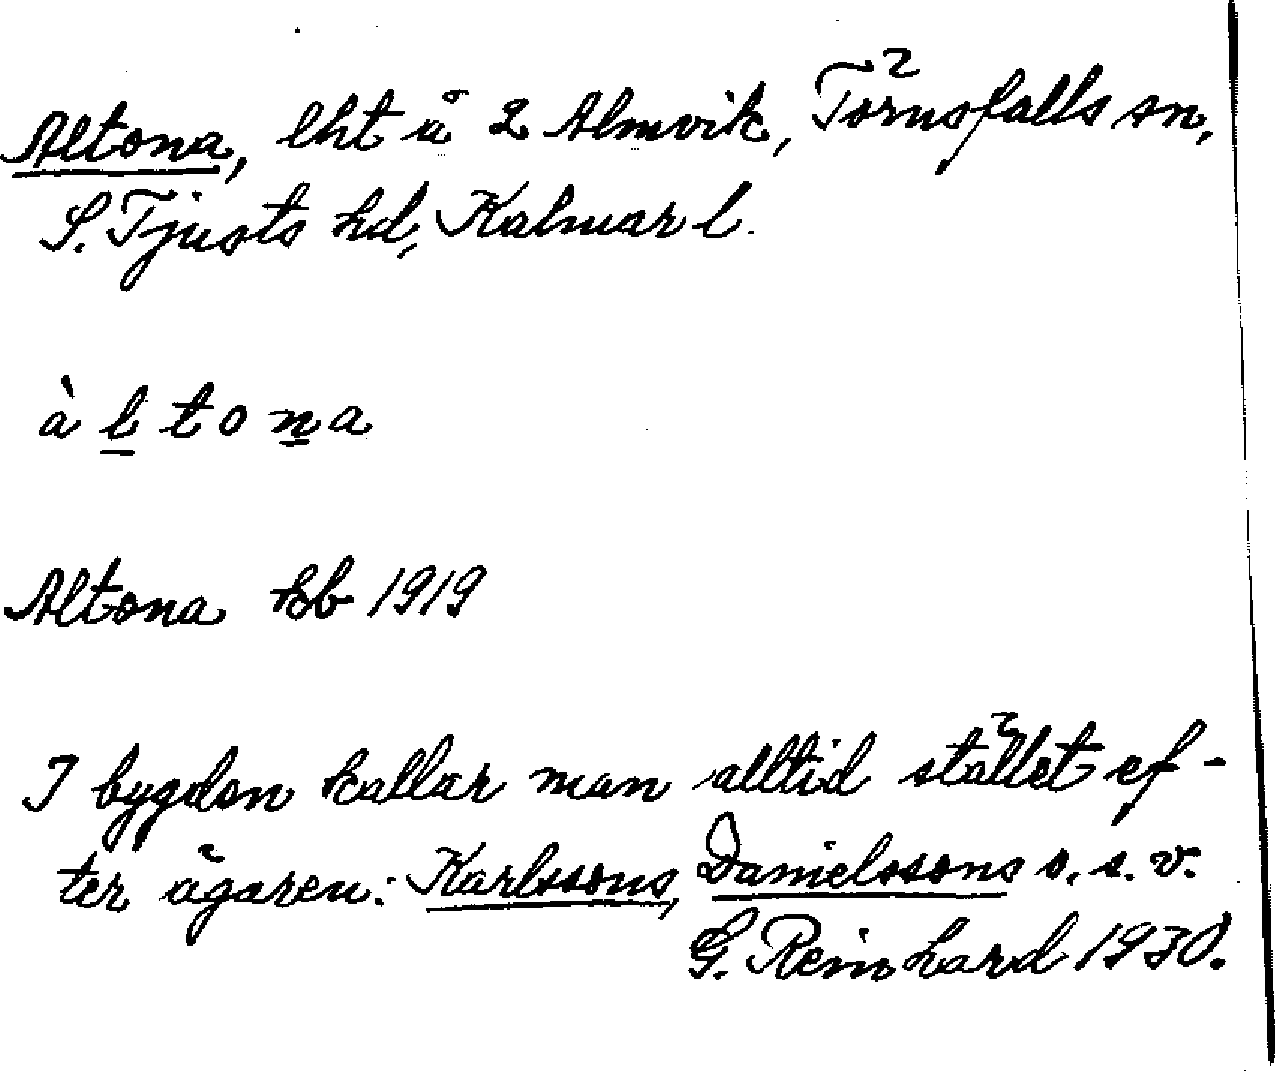 Altona, lht å 2 Almvik, Törnsfalls sn,
S. Tjusts hd, Kalmar l.
à l t o n a
Altona kb 1919
I bygden kallar man alltid stället ef-
ter ägaren: Karlssons, Danielssons o. s. v.
G. Reinhard 1930.